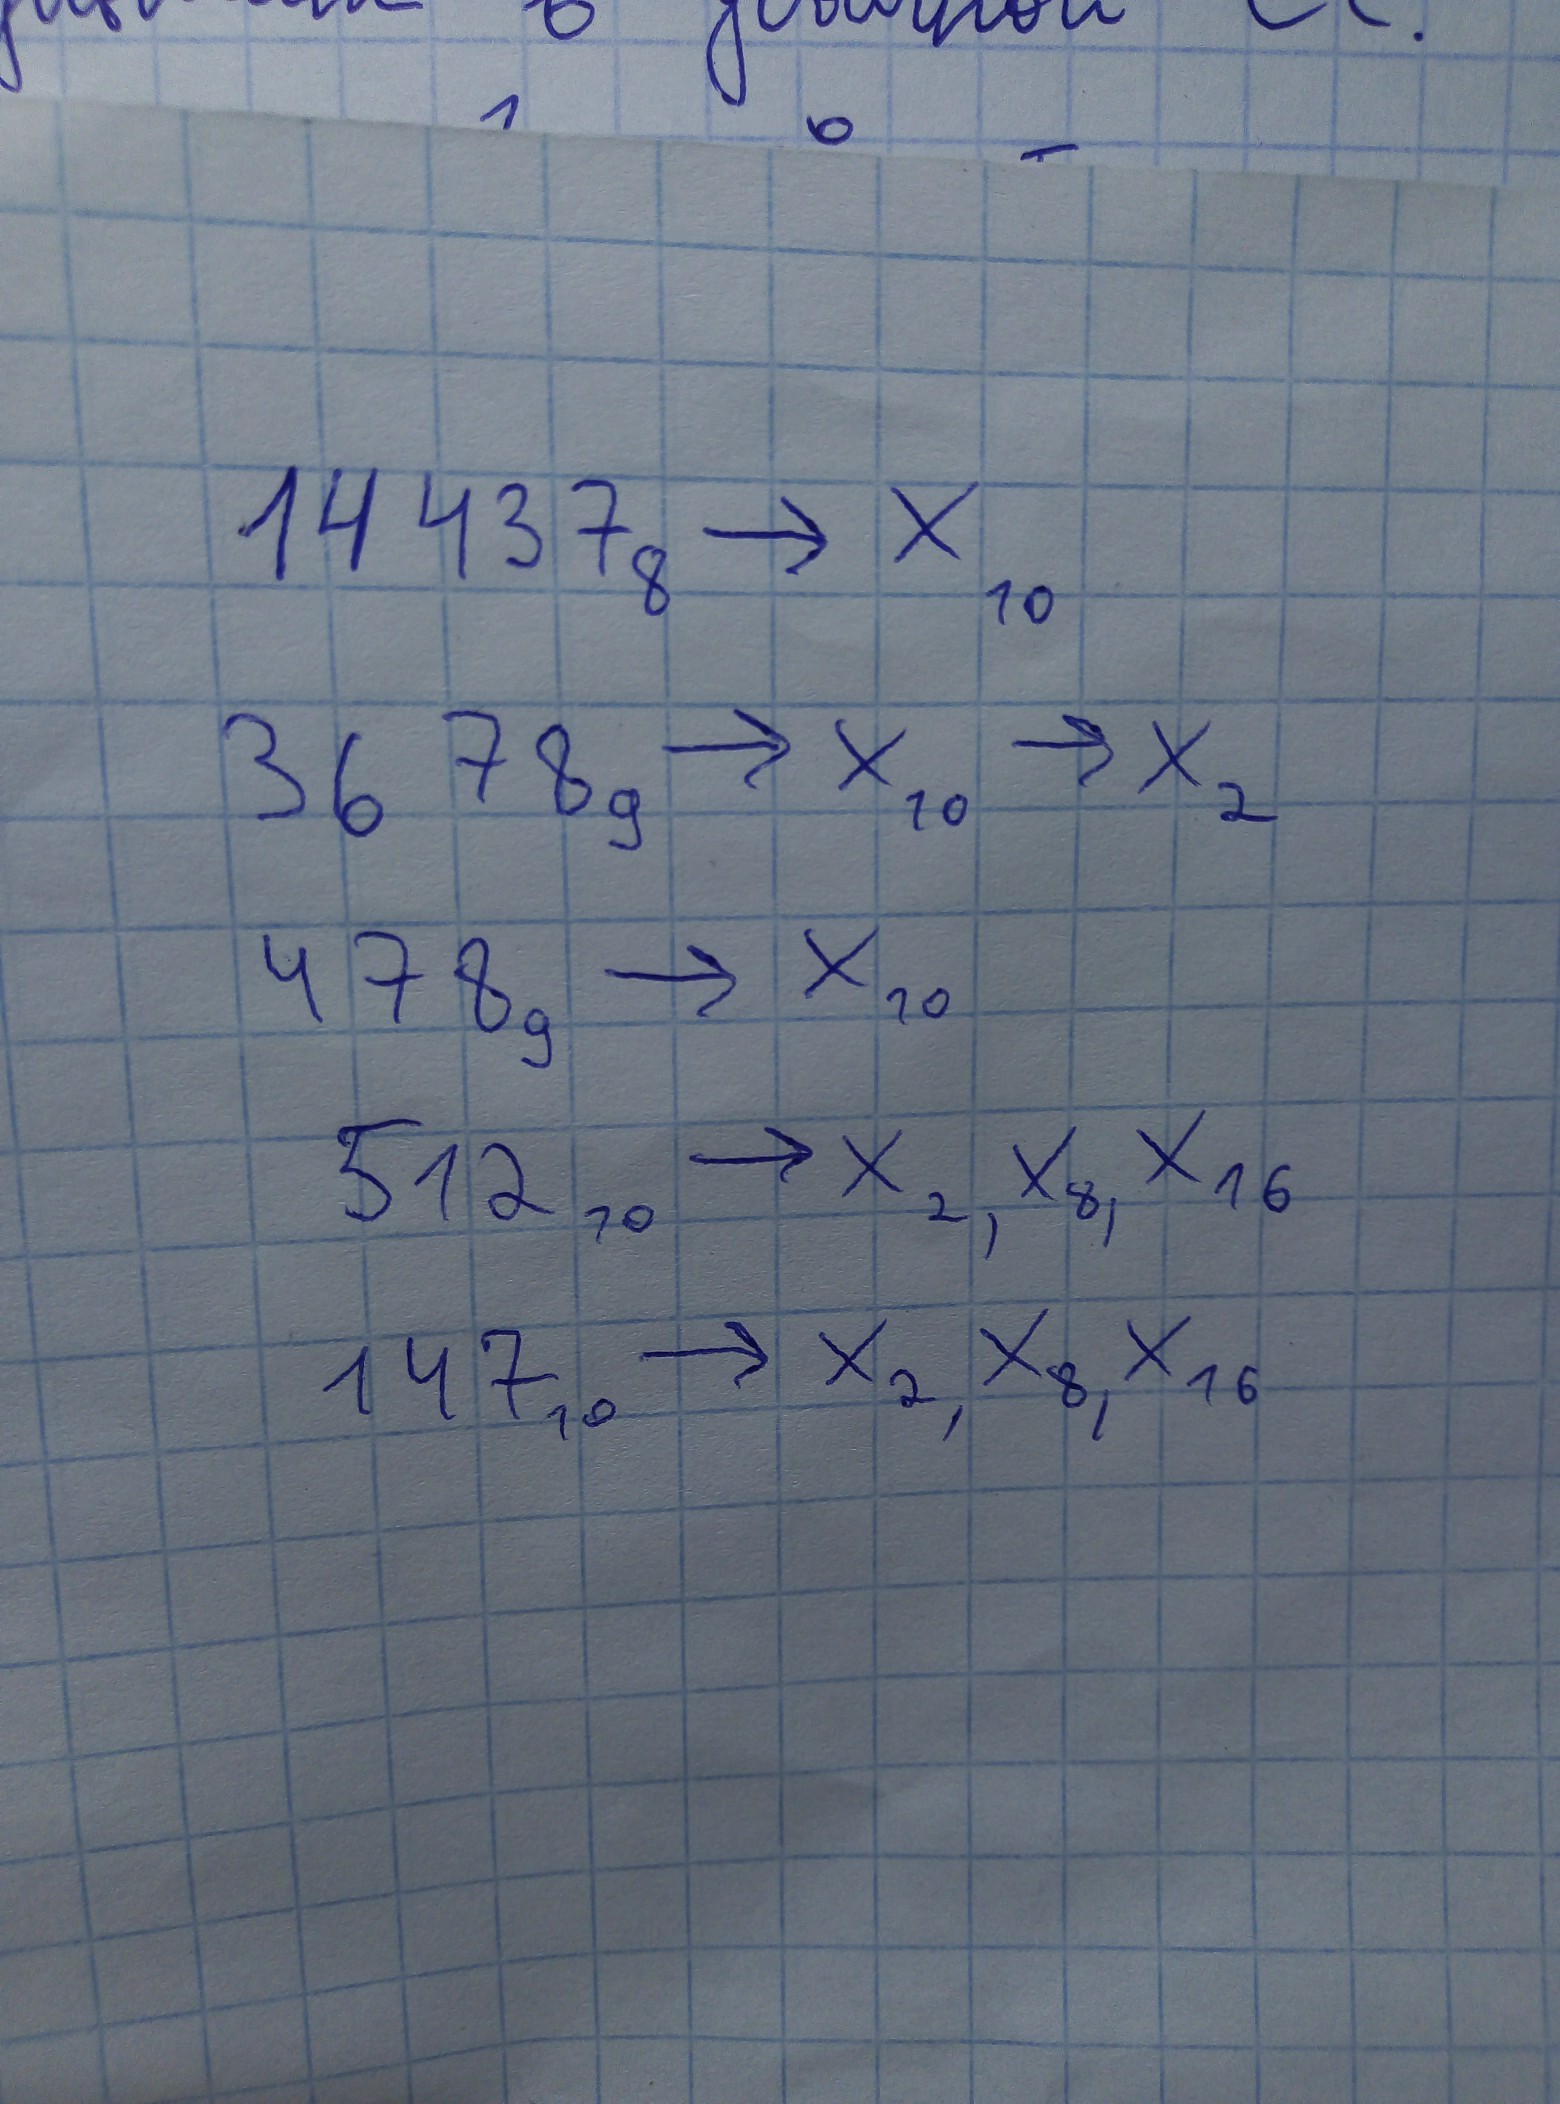 в
14437₈ → X₁₀
3678₉ → X₁₀ → X₂
478₉ → X₁₀
512₁₀ → X₂, X₈, X₁₆
147₁₀ → X₂, X₈, X₁₆